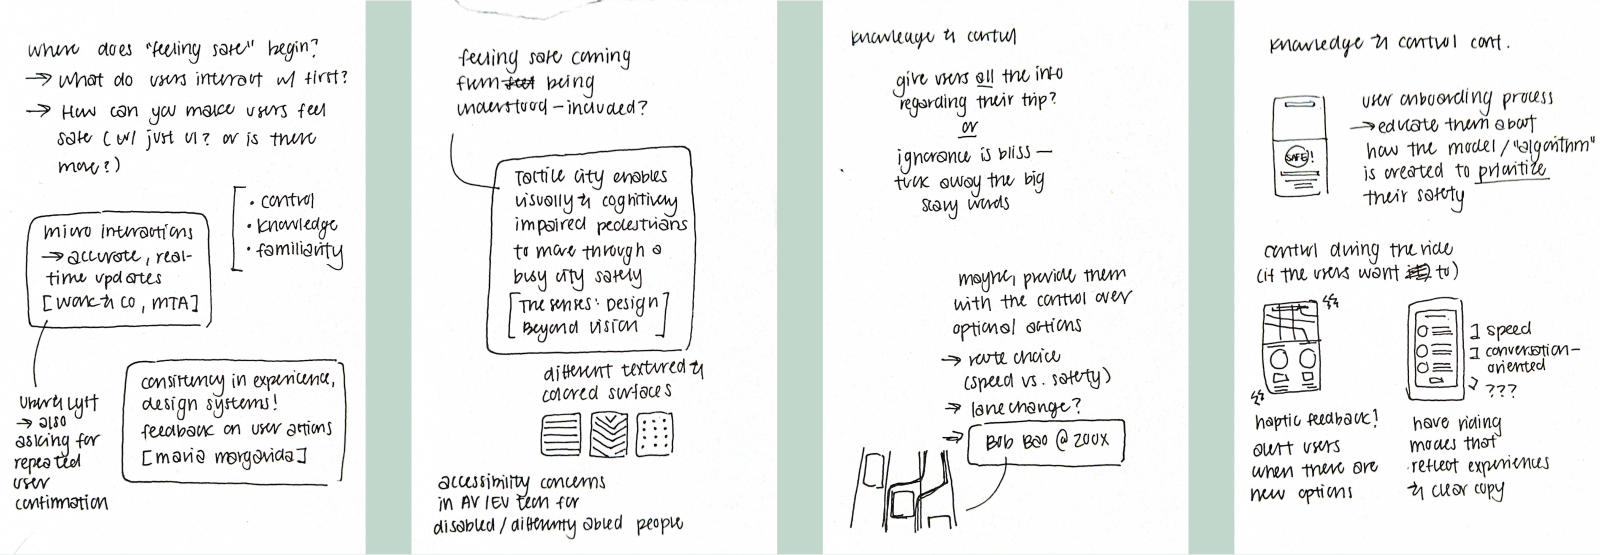 where does "feeling safe" begin?
→ What do users interact w/ first?
→ How can you make users feel
safe (w/ just UI? or is there
more?)
• control
• knowledge
• familiarity
micro interactions
→ accurate, real-
time updates
[Work & CO, MTA]
consitency in experience,
design systems!
feedback on user actions
[maria margarida]
Uber & Lyft
→ also
asking for
repeated
user
confirmation
feeling safe coming
from feel being
understood – included?
Tactile city enables
visually & cognitively
impaired pedestrians
to move through a
busy city safely
[The senses: Design
Beyond Vision]
different textured &
colored surfaces
accessibility concerns
in AV/EV tech for
disabled/differently abled people
knowledge & control
give users all the info
regarding their trip?
or
ignorance is bliss –
tuck away the big
scary words
maybe, provide them
with the control over
optional actions
→ route choice
(speed vs. safety)
→ lane change?
→ Bob Bao @ ZOOX
knowledge & control cont.
user onboarding process
→ educate them about
how the model/"algorithm"
is created to prioritize
their safety
SAFE!
control during the ride
(if the users want to)
speed
conversation-
oriented
???
haptic feedback!
alert users
when there are
new options
have riding
modes that
reflect experiences
& clear copy